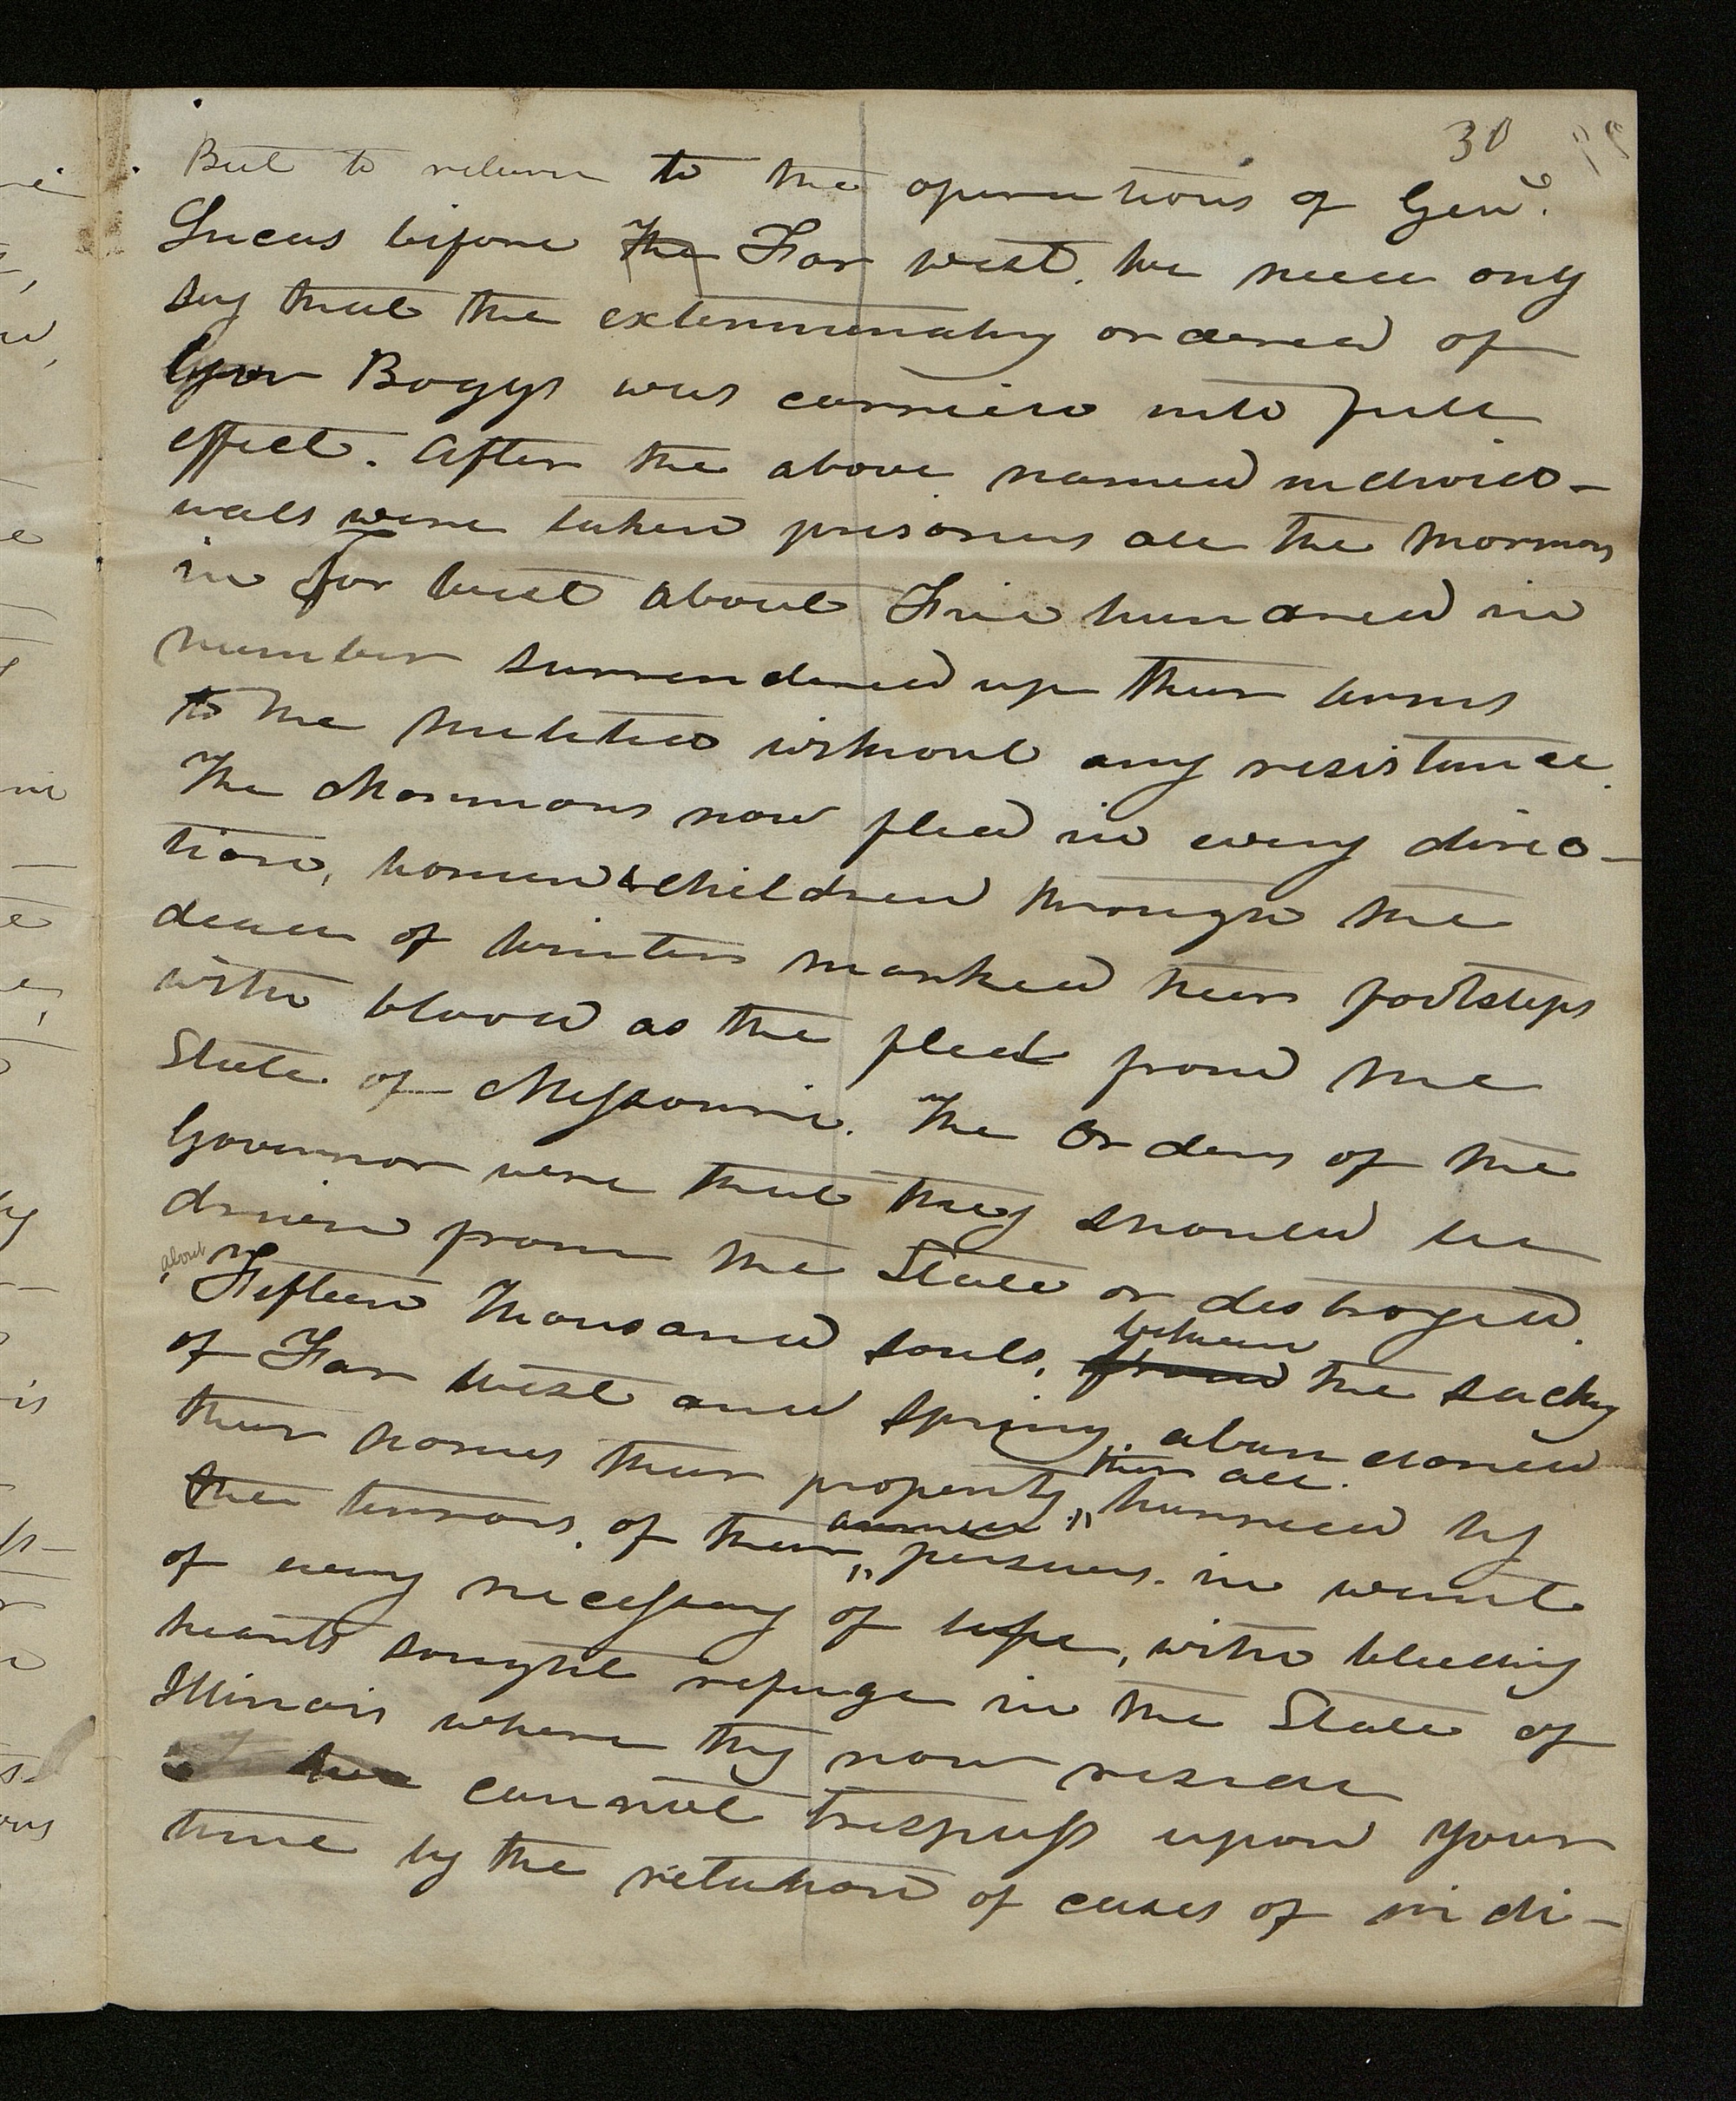 30
But to return to the operations of Genl.
Lucus before the Far west. We need only
say that the exterminating ordered of
Gov Boggs was carried into full
effect. After the above named individ-
uals were taken prisoners all the Mormons
in Far West about Five hundred in
number surrendered up their arms
to the militia without any resistance.
The Mormons now fled in every direc-
tion, women & children through the
dead of winter marked their footsteps
with blood as the fled from the
State of Missouri. The Orders of the
Governor were that they should be
driven from the State or destroyed.
about
Fifteen Thousand souls, from the sacking
between
of Far West and spring, abandoned
their homes their property, hurried by
their all.
the terrors, of their persuers. in want
armed
of every necessary of life, with bleeding
hearts sought refuge in the State of
Illinois where they now reside
We cannot trespass upon your
time by the relation of cases of indi-